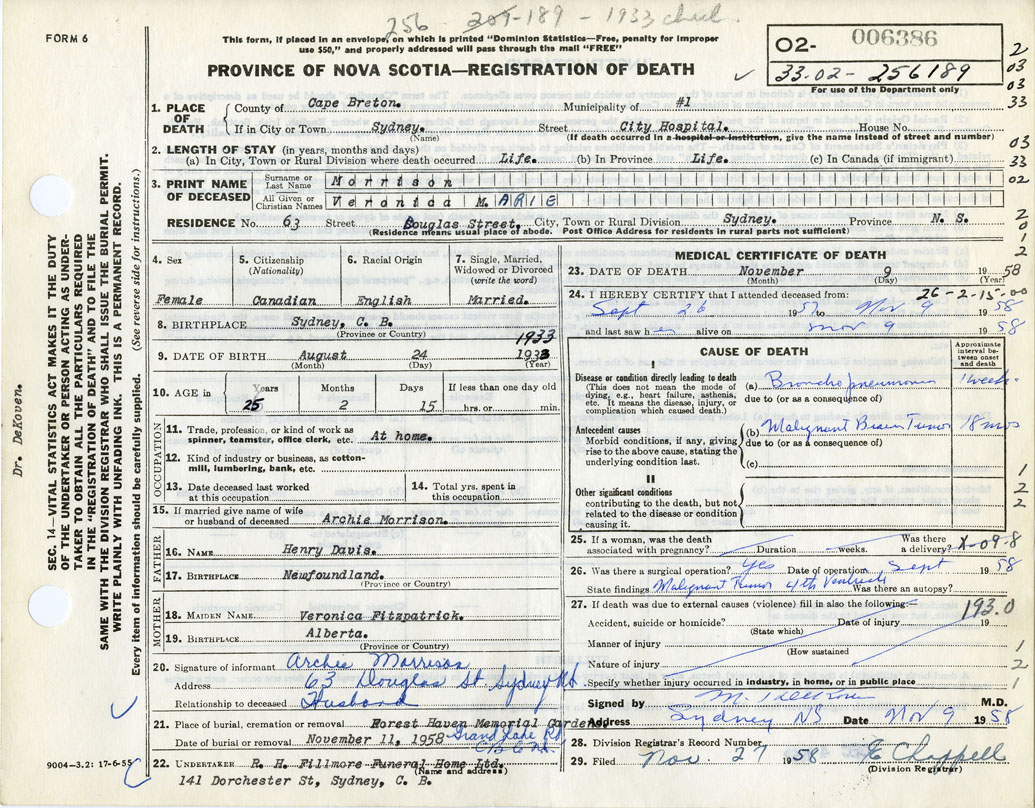 256 - 209-189 - 1933 check.
FORM 6
This form, if placed in an envelope, on which is printed "Dominion Statistics—Free, penalty for improper
use $50," and properly addressed will pass through the mail "FREE"
PROVINCE OF NOVA SCOTIA—REGISTRATION OF DEATH
O2- 006386
33-02- 256189
For use of the Department only
2
03
03
33
03
33
02
0
2
0
1
2
1. PLACE OF DEATH
County of Cape Breton. Municipality of #1
If in City or Town Sydney. Street City Hospital. House No.
(Name) (If death occurred in a hospital or institution, give the name instead of street and number)
2. LENGTH OF STAY (in years, months and days)
(a) In City, Town or Rural Division where death occurred Life. (b) In Province Life. (c) In Canada (if immigrant)
3. PRINT NAME OF DECEASED
Surname or Last Name Morrison
All Given or Christian Names Veronica MARIE
RESIDENCE No. 63 Street Douglas Street. City, Town or Rural Division Sydney. Province N. S.
(Residence means usual place of abode. Post Office Address for residents in rural parts not sufficient)
4. Sex
Female
5. Citizenship
(Nationality)
Canadian
6. Racial Origin
English
7. Single, Married,
Widowed or Divorced
(write the word)
Married.
8. BIRTHPLACE Sydney, C. B.
(Province or Country)
1933
9. DATE OF BIRTH August 24 1933
(Month) (Day) (Year)
10. AGE in
Years Months Days If less than one day old
25 2 15 hrs. or min.
OCCUPATION
11. Trade, profession, or kind of work as
spinner, teamster, office clerk, etc. At home.
12. Kind of industry or business, as cotton-
mill, lumbering, bank, etc.
13. Date deceased last worked
at this occupation
14. Total yrs. spent in
this occupation
15. If married give name of wife
or husband of deceased Archie Morrison.
FATHER
16. NAME Henry Davis.
17. BIRTHPLACE Newfoundland.
(Province or Country)
MOTHER
18. MAIDEN NAME Veronica Fitzpatrick.
19. BIRTHPLACE Alberta.
(Province or Country)
20. Signature of informant Archie Morrison
Address 63 Douglas St Sydney NS
Relationship to deceased Husband
21. Place of burial, cremation or removal Forest Haven Memorial Gardens,
Grand Lake Rd
Date of burial or removal November 11, 1958
22. UNDERTAKER R. H. Fillmore Funeral Home Ltd.
(Name and address)
141 Dorchester St, Sydney, C. B.
9004—3.2: 17-6-55
MEDICAL CERTIFICATE OF DEATH
23. DATE OF DEATH November 9 1958
(Month) (Day) (Year)
26-2-15-00
24. I HEREBY CERTIFY that I attended deceased from:
Sept 26 1957 to Nov 9 1958
and last saw her alive on Nov 9 1958
CAUSE OF DEATH
Approximate
interval be-
tween onset
and death
I
Disease or condition directly leading to death
(This does not mean the mode of
dying, e.g., heart failure, asthenia,
etc. It means the disease, injury, or
complication which caused death.)
(a) Bronchopneumonia 1 week.
due to (or as a consequence of)
Antecedent causes
Morbid conditions, if any, giving
rise to the above cause, stating the
underlying condition last.
(b) Malignant Brain Tumor 18 mos
due to (or as a consequence of)
(c)
II
Other significant conditions
contributing to the death, but not
related to the disease or condition
causing it.
1
2
2
25. If a woman, was the death
associated with pregnancy? Duration weeks. Was there
a delivery? X-09-8
26. Was there a surgical operation? Yes Date of operation Sept 1958
State findings Malignant Tumor 4th Ventricle Was there an autopsy?
27. If death was due to external causes (violence) fill in also the following:
193.0
Accident, suicide or homicide? Date of injury 19
(State which)
Manner of injury
(How sustained
Nature of injury
Specify whether injury occurred in industry, in home, or in public place
1
2
1
Signed by M.D.
Address Sydney NS Date Nov 9 1958
28. Division Registrar's Record Number
29. Filed Nov. 27 1958 Chappell
(Division Registrar)
Dr. DeKoven.
SEC. 14—VITAL STATISTICS ACT MAKES IT THE DUTY
OF THE UNDERTAKER OR PERSON ACTING AS UNDER-
TAKER TO OBTAIN ALL THE PARTICULARS REQUIRED
IN THE "REGISTRATION OF DEATH" AND TO FILE THE
SAME WITH THE DIVISION REGISTRAR WHO SHALL ISSUE THE BURIAL PERMIT.
WRITE PLAINLY WITH UNFADING INK. THIS IS A PERMANENT RECORD.
Every item of information should be carefully supplied. (See reverse side for instructions.)